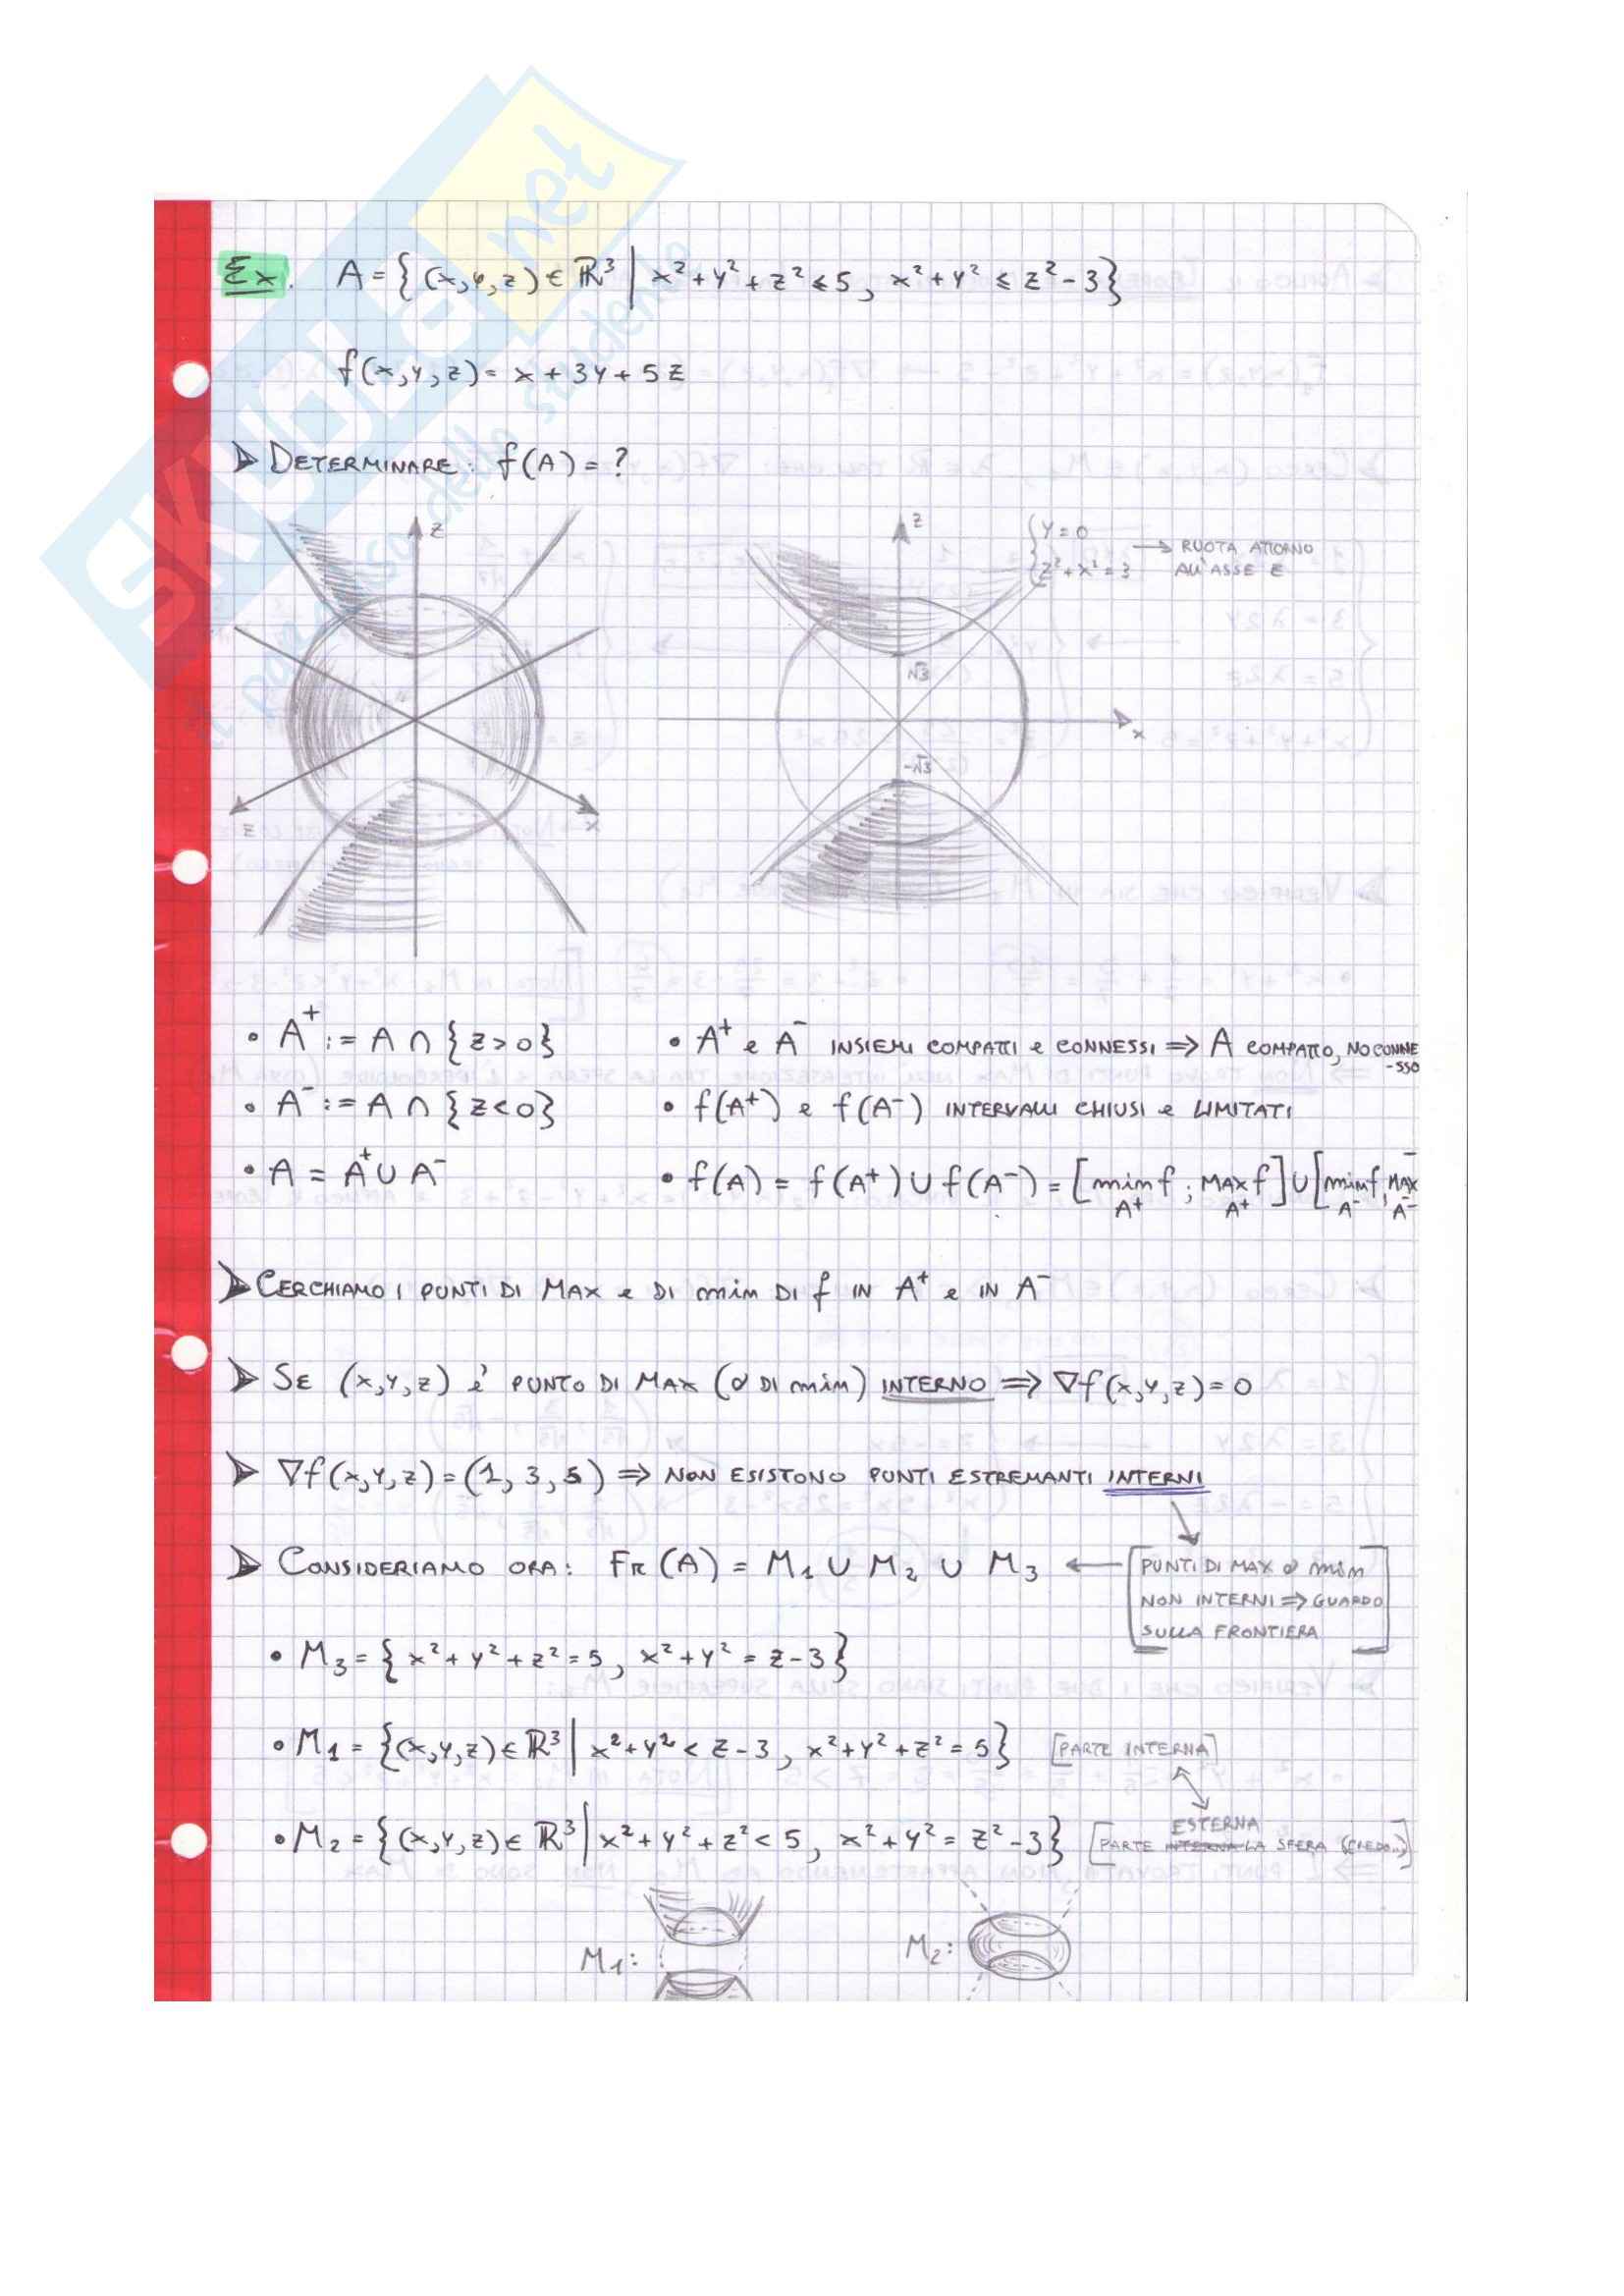 SKUOLA.net
il paradiso dello studente
Ex. A = { (x,y,z) ∈ ℝ³ | x² + y² + z² ≤ 5, x² + y² ≤ z² - 3}
f(x,y,z) = x + 3y + 5z
➤ DETERMINARE: f(A) = ?
z
z
x
z
{ y = 0
z² + x² = 3
→ RUOTA ATTORNO
ALL'ASSE z
√3
-√3
x
• A⁺ := A ∩ { z > 0 }
• A⁺ e A⁻ INSIEMI COMPATTI e CONNESSI ⇒ A COMPATTO, NO CONNE
-SSO
• A⁻ := A ∩ { z < 0 }
• f(A⁺) e f(A⁻) INTERVALLI CHIUSI e LIMITATI
• A = A⁺ ∪ A⁻
• f(A) = f(A⁺) ∪ f(A⁻) = [min f ; MAX f] ∪ [min f, MAX
A⁺ A⁺ A⁻ A⁻
➤ CERCHIAMO I PUNTI DI MAX e DI min DI f IN A⁺ e IN A⁻
➤ SE (x,y,z) è PUNTO DI MAX (o DI min) INTERNO ⇒ ∇f(x,y,z) = 0
➤ ∇f(x,y,z) = (1, 3, 5) ⇒ NON ESISTONO PUNTI ESTREMANTI INTERNI
➤ CONSIDERIAMO ORA: FR(A) = M₁ ∪ M₂ ∪ M₃ ←
[PUNTI DI MAX o min
NON INTERNI ⇒ GUARDO
SULLA FRONTIERA]
• M₃ = { x² + y² + z² = 5, x² + y² = z - 3 }
• M₁ = {(x,y,z) ∈ ℝ³ | x² + y² < z - 3, x² + y² + z² = 5} [PARTE INTERNA]
ESTERNA
• M₂ = {(x,y,z) ∈ ℝ³ | x² + y² + z² < 5, x² + y² = z² - 3} [PARTE INTERNA LA SFERA (CREDO..)]
M₁:
M₂: